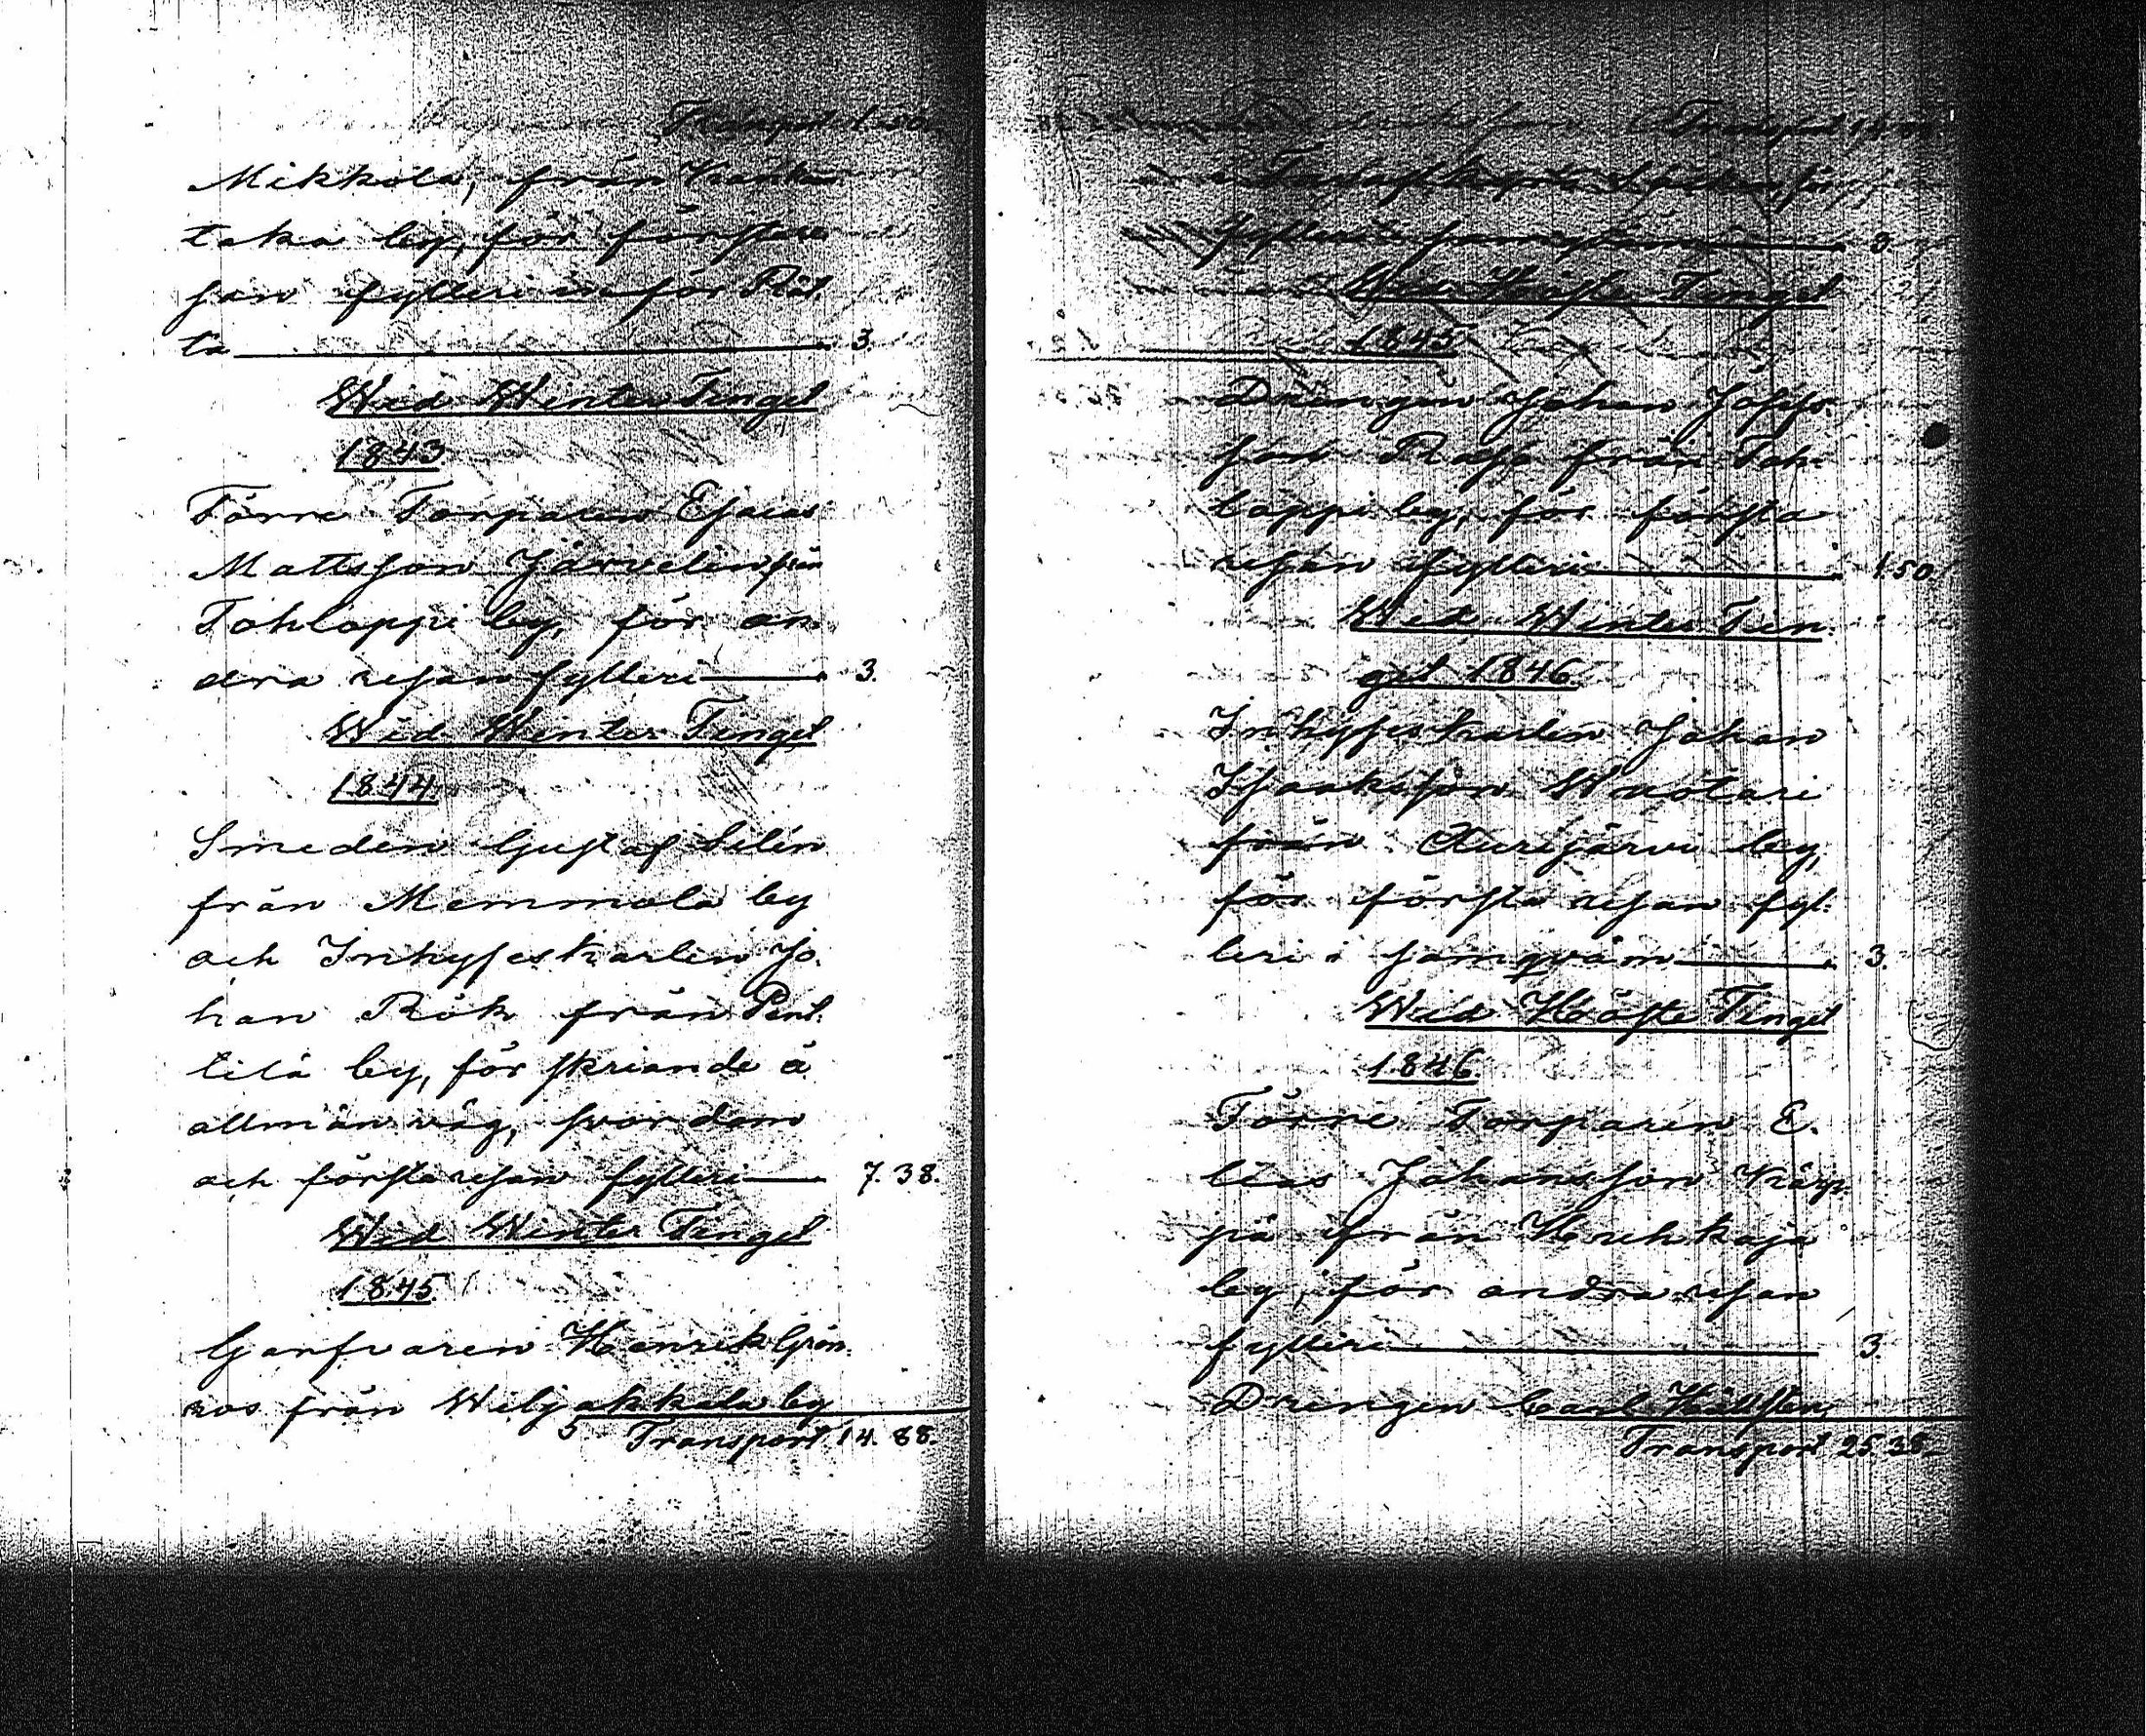 Transport 1.50.
Mikkola, från
taka by, för första
san fylleri inför Rät,
ta 3.
Wid Winter Tinget
1843
Förre Torparen Esaias
Mattsson Järvelin från
Tohloppi by, för an
dra resan fylleri 3.
Wid Winter Tinget
1844.
Smeden Gustaf Selin
från Memmola by
och Inhyseskarlen Jo,
han Rök från Pent,
tilä by, för skriande å
allmän väg, svordom
och första resan fylleri 7. 38.
Wid Winter Tinget
1845
Garfvaren Henrik Grön,
roos från Wiljakkala by
Transport 14. 88.
Transport
fylleri 3
Wid Höste Tinget
1845
Drängen Johan Josefs
son från Toh,
loppi by, för första
resan fylleri 1.50.
Wid Winter Tin,
get 1846.
Inhyseskarlen Johan
Isaaksson Wuotari
från Aurejärvi by,
för första resan fyl,
leri i samqväm 3.
Wid Höste Tinget
1846.
Förre Torparen E.
lias Johansson Kärp,
pä från Kuhkoja
by, för andra resan
fylleri 3.
Drengen Carl Hällsten,
Transport 25.38.